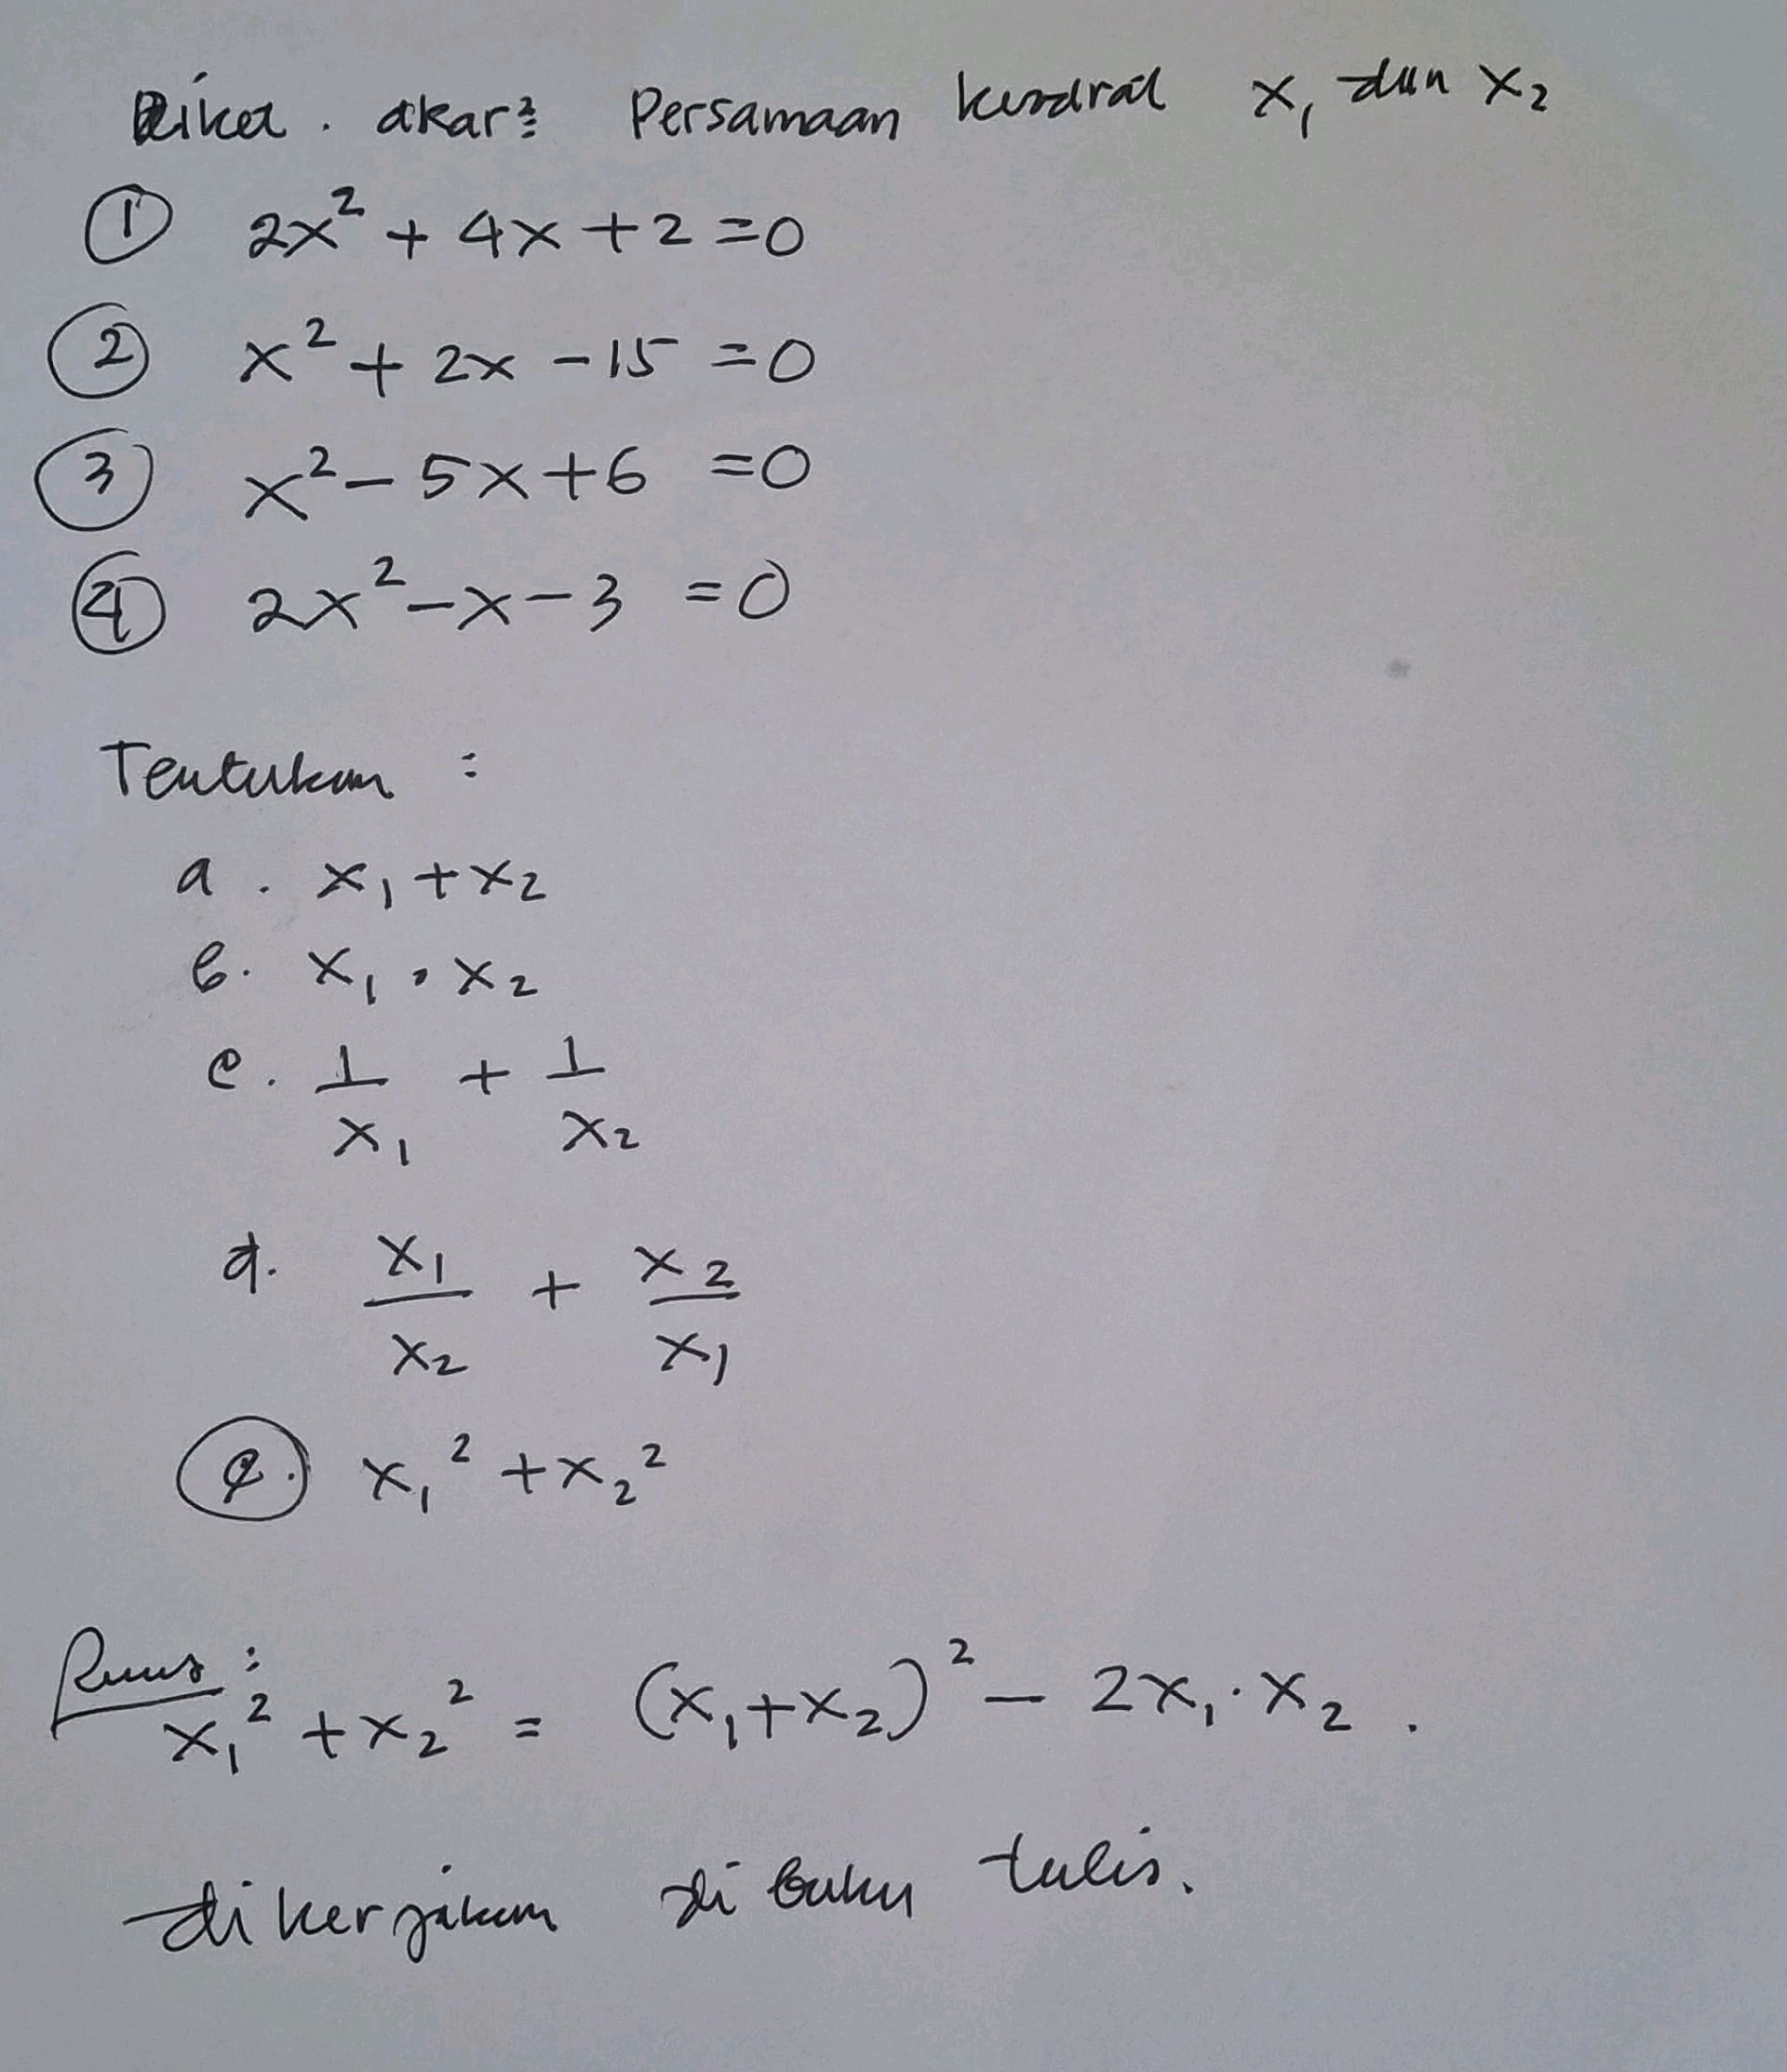 Jika . akar² Persamaan kuadrat x₁ dan x₂
① 2x² + 4x + 2 = 0
② x² + 2x - 15 = 0
③ x² - 5x + 6 = 0
④ 2x² - x - 3 = 0
Tentukan :
a . x₁ + x₂
b. x₁ . x₂
c. 1/x₁ + 1/x₂
d. x₁/x₂ + x₂/x₁
e. x₁² + x₂²
Rumus :
x₁² + x₂² = (x₁ + x₂)² - 2x₁ . x₂ .
dikerjakan di buku tulis.